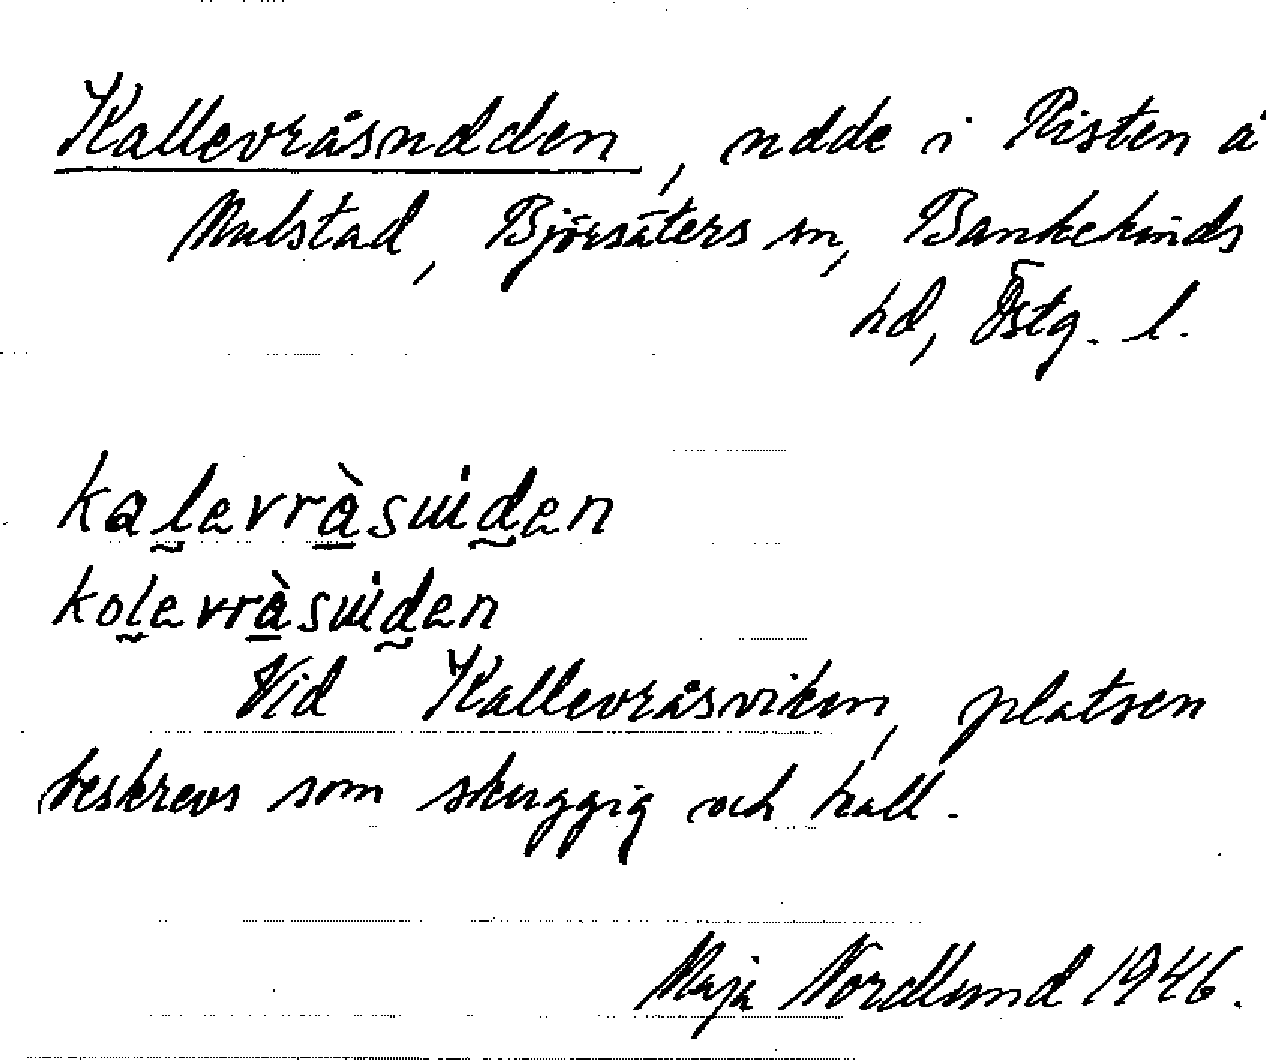 Kallevråsudden, udde i Risten å
Mulstad, Björsäters sn, Bankekinds
hd, Östg. l.
Vid Kallevråsviken, platsen
beskrevs som skuggig och kall.
Maja Nordlund 1946.